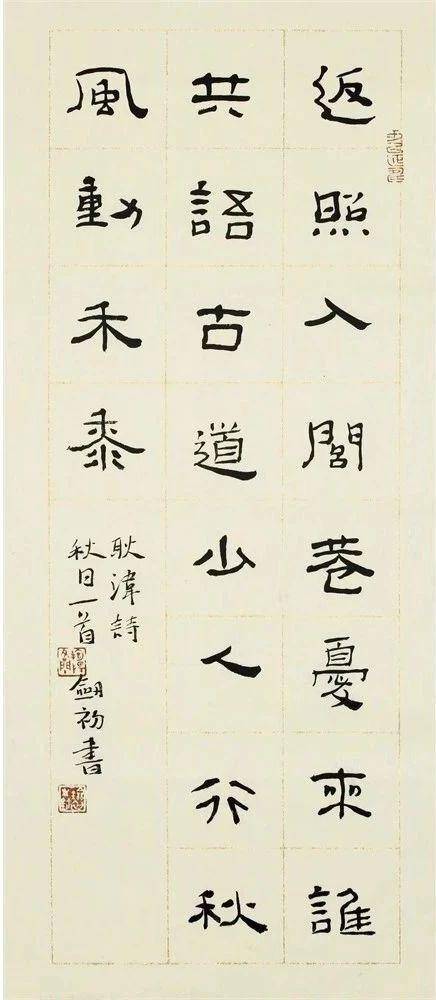 返照入閭巷憂來誰
共語古道少人行秋
風動禾黍
耿湋詩
秋日一首
劍初書